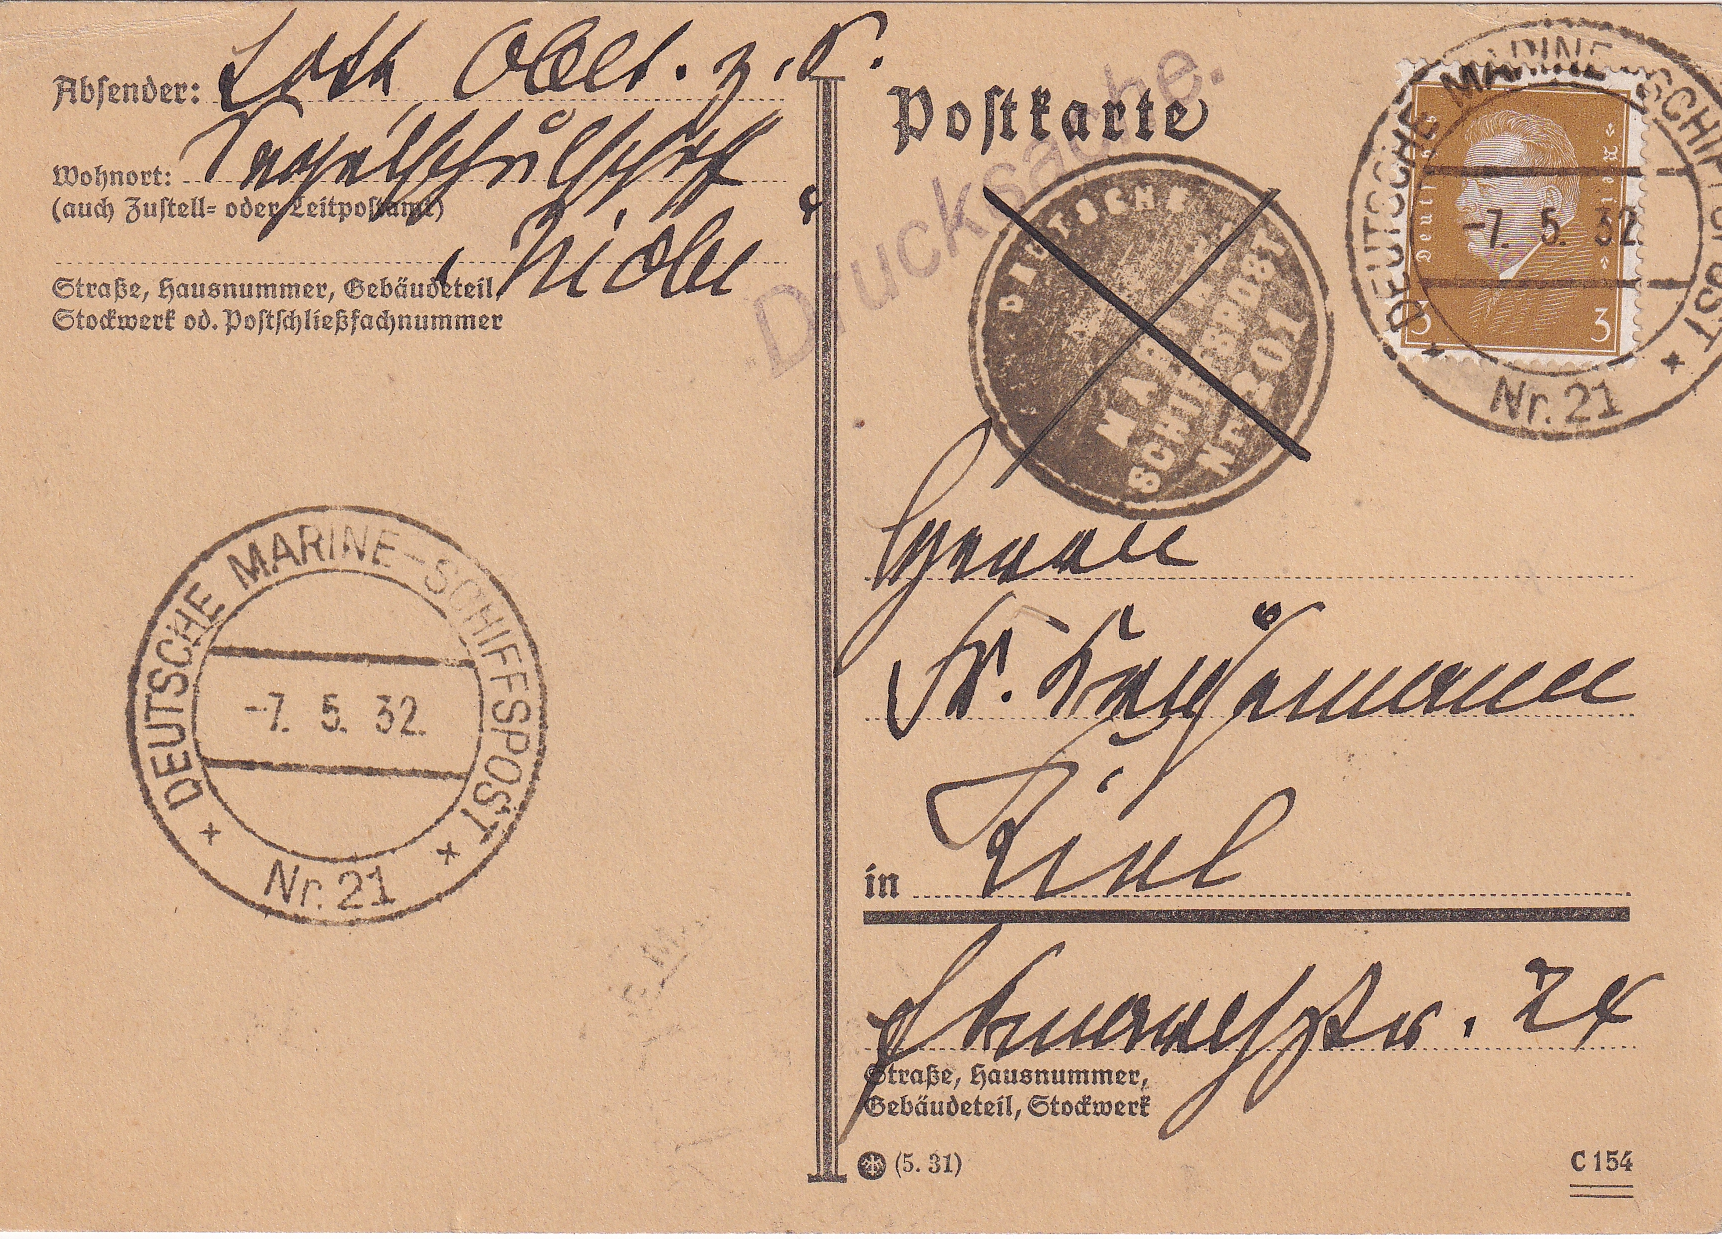 Absender: Lott Oblt. z. S.
Wohnort: Segelschulschiff
(auch Zustell- oder Leitpostamt)
„Niobe“
Straße, Hausnummer, Gebäudeteil,
Stockwerk od. Postschließfachnummer
DEUTSCHE MARINE-SCHIFFSPOST
-7. 5. 32.
* Nr. 21 *
Postkarte
Drucksache.
DEUTSCHE
MARINE
SCHIFFSPOST
NR 301
DEUTSCHE MARINE-SCHIFFSPOST
-7. 5. 32.
3 3
* Nr. 21 *
Herrn
in Kiel
str. 24
Straße, Hausnummer,
Gebäudeteil, Stockwerk
(5. 31)
C 154